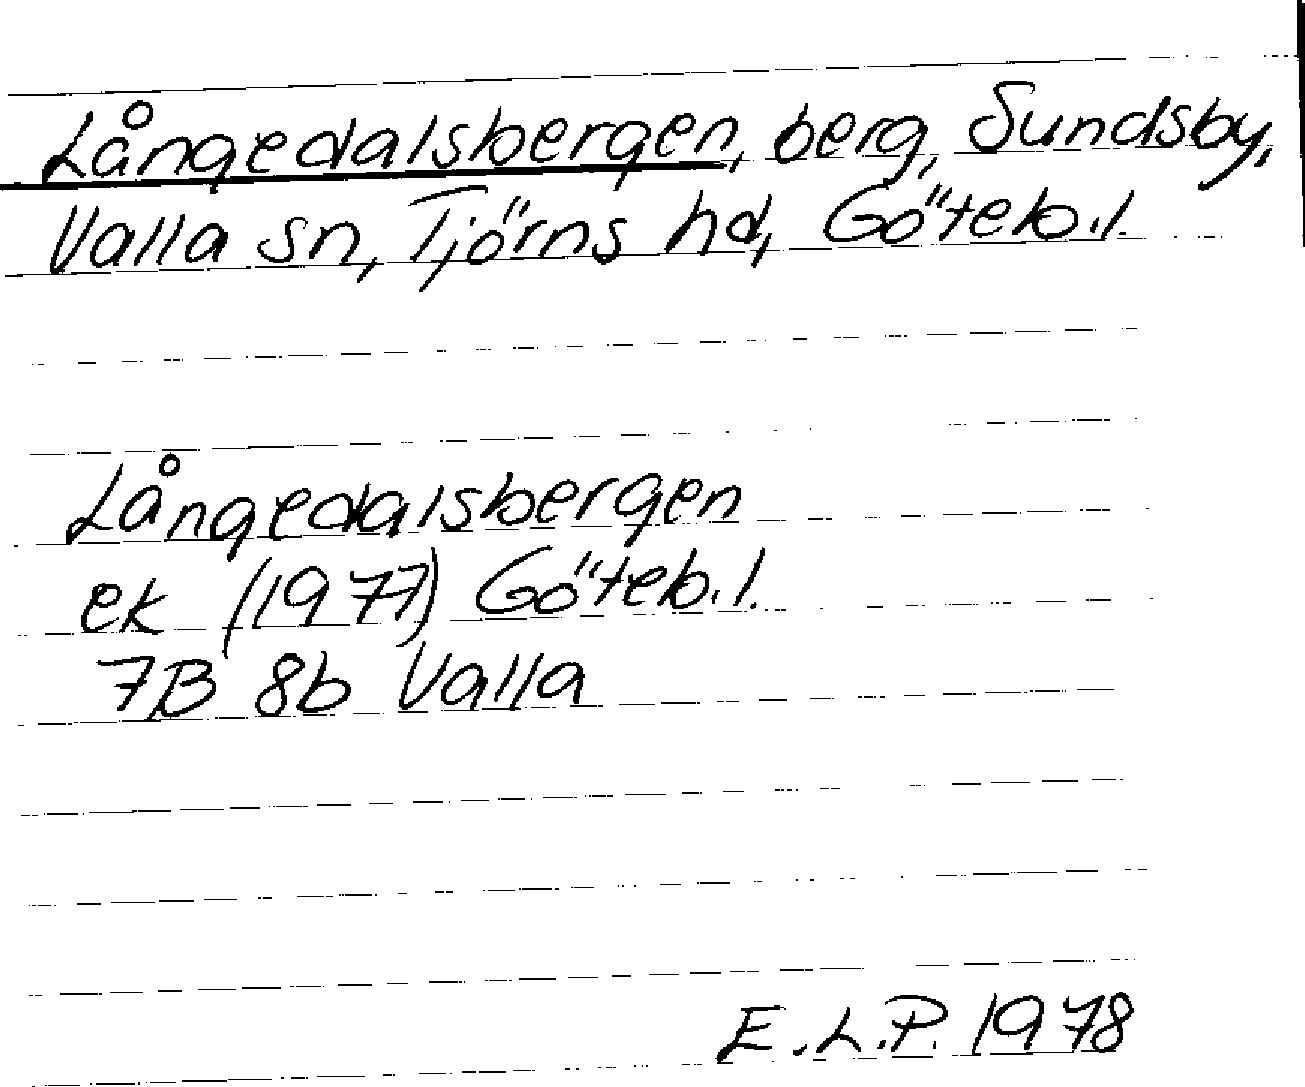 Långedalsbergen, berg, Sundsby,
Valla sn, Tjörns hd, Göteb.l.
Långedalsbergen
ek (1977) Göteb.l.
7B 8b Valla
E.L.P. 1978